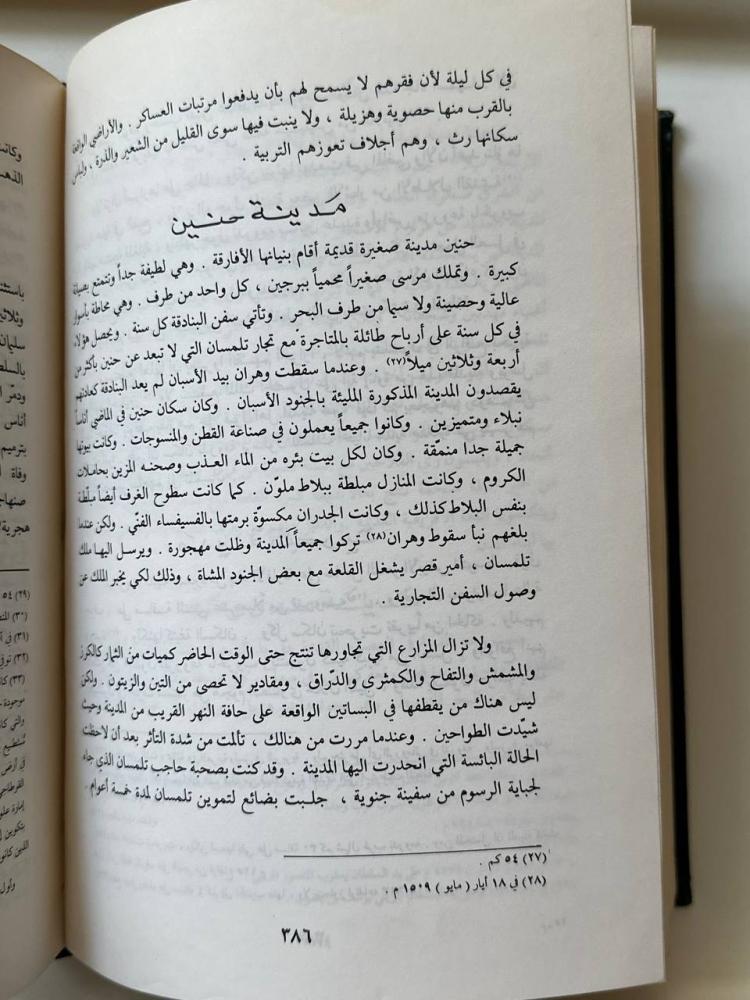 في كل ليلة لأن فقرهم لا يسمح لهم بأن يدفعوا مرتبات العساكر . والأراضي الواقعة
بالقرب منها حصوية وهزيلة ، ولا ينبت فيها سوى القليل من الشعير والذرة ، ولباس
سكانها رث ، وهم أجلاف تعوزهم التربية .
مَدينة حنين
حنين مدينة صغيرة قديمة أقام بنيانها الأفارقة . وهي لطيفة جداً وتتمتع بصيانة
كبيرة . وتملك مرسى صغيراً محمياً ببرجين ، كل واحد من طرف . وهي محاطة بأسوار
عالية وحصينة ولا سيما من طرف البحر . وتأتي سفن البنادقة كل سنة . ويحصل هؤلاء
في كل سنة على أرباح طائلة بالمتاجرة مع تجار تلمسان التي لا تبعد عن حنين بأكثر من
أربعة وثلاثين ميلاً(٢٧) . وعندما سقطت وهران بيد الأسبان لم يعد البنادقة كعادتهم
يقصدون المدينة المذكورة المليئة بالجنود الأسبان . وكان سكان حنين في الماضي أناساً
نبلاء ومتميزين . وكانوا جميعاً يعملون في صناعة القطن والمنسوجات . وكانت بيوتها
جميلة جدا منمّقة . وكان لكل بيت بئره من الماء العـذب وصحنـه المزين بحاملات
الكروم ، وكانت المنازل مبلطة ببلاط ملوّن . كما كانت سطوح الغرف أيضاً مبلّطة
بنفس البلاط كذلك ، وكانت الجدران مكسوّة برمتها بالفسيفساء الفنّي . ولكن عندما
بلغهم نبأ سقوط وهران(٢٨) تركوا جميعاً المدينة وظلت مهجورة . ويرسـل اليهـا ملك
تلمسان ، أمير قصر يشغل القلعة مع بعض الجنود المشاة ، وذلك لكي يخبر الملك عن
وصول السفن التجارية .
ولا تزال المزارع التي تجاورها تنتج حتى الوقت الحاضر كميات من الثمار كالكرز
والمشمش والتفاح والكمثرى والدّراق ، ومقادير لا تحصى من التين والزيتون . ولكن
ليس هناك من يقطفها في البساتين الواقعة على حافة النهر القريب من المدينة وحيث
شيّدت الطواحين . وعندما مررت من هنالك ، تألمت من شدة التأثر بعد أن لاحظت
الحالة البائسة التي انحدرت اليها المدينة . وقد كنت بصحبة حاجب تلمسان الذي جاء
لجباية الرسوم من سفينة جنوية ، جلـبت بضائع لتموين تلمسان لمدة خمسة أعوام .
(٢٧) ٥٤ كم .
(٢٨) في ١٨ أيار ( مايو ) ١٥٠٩ م .
٣٨٦